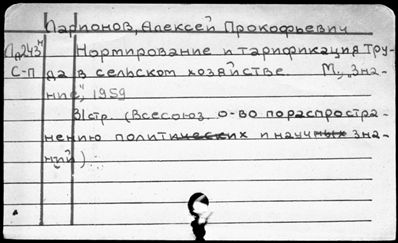 Ларионов, Алексей Прокофьевич
Лд243н Нормирование и тарификация тру-
С-п да в сельском хозяйстве М., „Зна-
ние", 1959
31стр. (Всесоюз. о-во по распростра-
нению политических и научных зна-
ний).